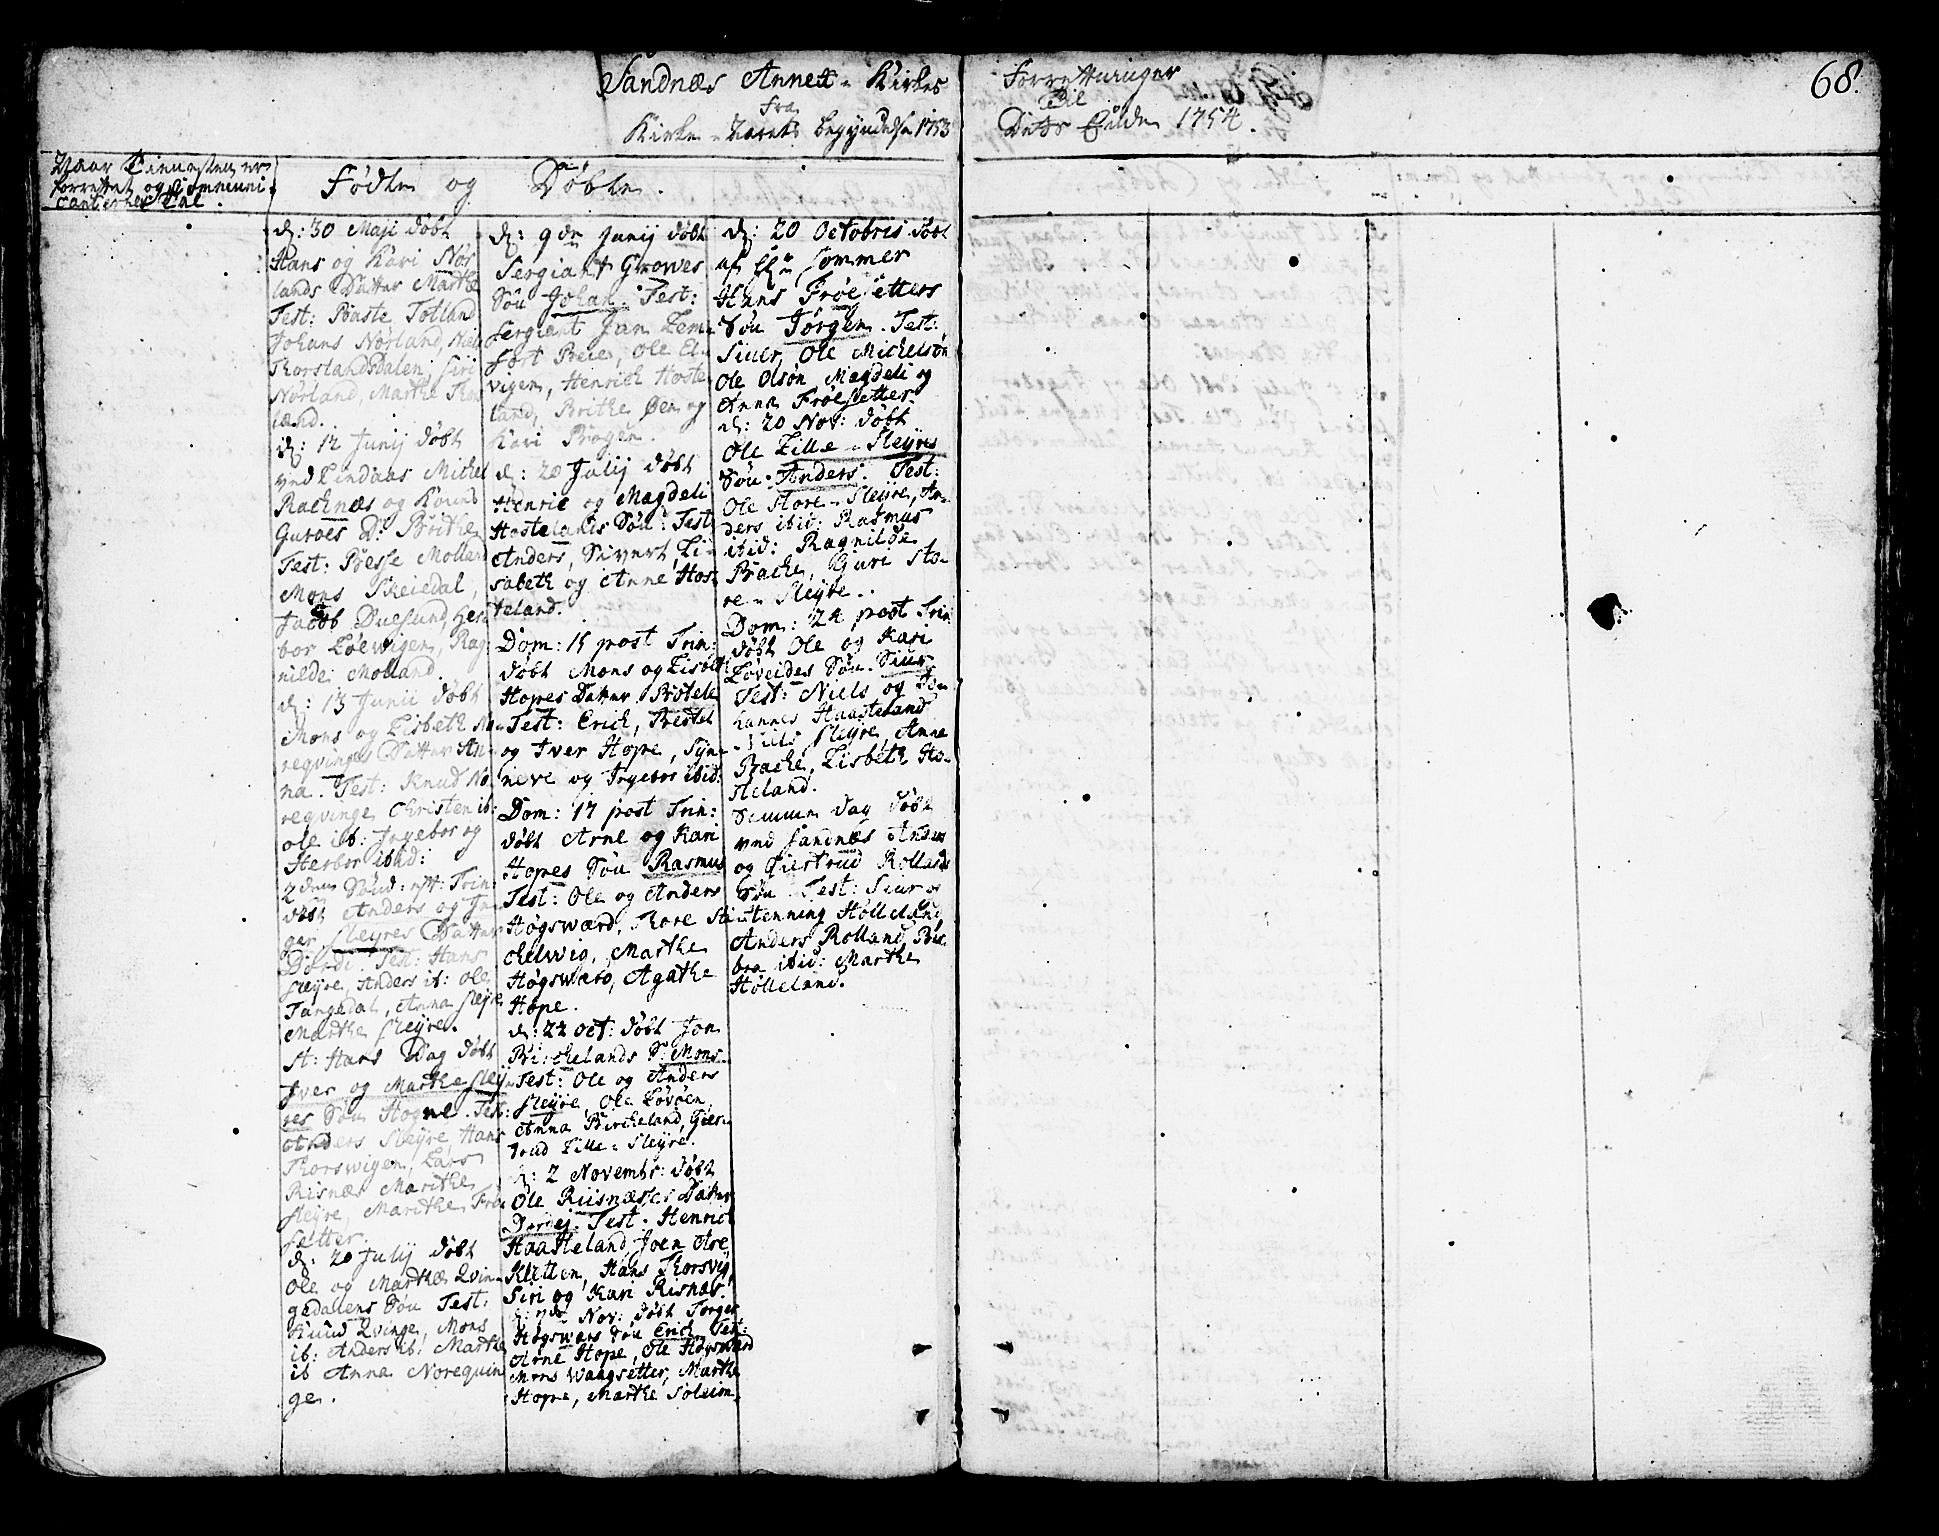 Sandnæs Annex Kirkes Forretninger 68.
fra Til
Kirke-Aarets begyndelse 1753 Dets Ende 1754.
Naar Tienesten er
forrettet og Communi-
canternes Tal.
Fødte og Døbte.
d: 30 Maji døbt
Hans og Kari Nør
lands Datter Marthe
Test: Baste Totland
Johans Nørland, Niels
Thorslandsdalen, Siri
Nørland, Marthe Thors
land.
d: 12 Junij døbt
ved Lindaas Michel
Racknæs og Karind
Guroes D: Brithe
Test: Besse Molland
Mons Skeiedal,
Jacob Duesund, Her
bor Løewigen, Rag
nilde Molland.
d: 13 Junii døbt
Mons og Lisbeth No
reqvinges Datter An
na. Test: Knud No
reqvinge, Christen ib:
Ole ib: Ingebor og
Herbor ibid:
2den Sønd: eft: Trin:
døbt Anders og In
ger Sleyres Datter
Dordi. Test: Hans
Sleyre, Anders ib: Ole
Tangedal, Anna Sleyre
Marthe Sleyre.
St: Hans Dag døbt
Iver og Marthe Sley
res Søn Hogne. Test:
Anders Sleyre, Hans
Thorswigen, Lars
Risnæs Marithe
Sleyre, Marithe Frøe
setter.
d: 20 Julij døbt
Ole og Marthe Qvin
gedalens Søn Test:
Knud Qvinge, Mons
ib: Anders ib: Marthe
ib Anna Norequin
ge.
d: 9de Junij døbt
Sergiant Growes
Søn Johan. Test:
Sergiant Jan Lem
fort Beie, Ole El
vigen, Henrich Hoste
land, Brithe Øen og
Kari Bragen.
d: 20 Julij døbt
Henric og Magdeli
Hostelands Søn: Test
Anders, Sivert, Li
sabeth og Anne Hos
teland.
Dom: 15 post Trin:
døbt Mons og Lisbeth
Hopes Datter Botele
Test: Erich, Bestel
og Iver Hope, Syn
neve og Ingebor ibid:
Dom: 17 post Trin:
døbt Arne og Kari
Hopes Søn Rasmus
Test: Ole og Anders
Høgsward, Thore Sti
chelwig, Marthe
Høgsward, Agathe
Hope.
d: 22 Oct: døbt Jon
Birchelands S: Mons
Test: Ole og Anders
Sleyre, Ole Løvøen
Anna Bircheland, Gies
trud Lille-Sleyre.
d: 2 Novembr: døbt
Ole Riisnæsses Datter
Dordej. Test. Henrich
Haasteland, Joen Are
Kletten, Hans Thorsvig
Siri og Kari Risnæs.
d: 7de Nov: døbt Torger
Høgswars Søn Erich Test:
Arne Hope, Ole Høgsward
Mons Wangsetter, Marthe
Hope, Marthe Soleim.
d: 20 Octobris døbt
af Hr: Sommer
Hans Frøesetters
Søn Jørgen. Test:
Siuer, Ole Michelsøn
Ole Olsøn, Magdeli og
Anna Frøesetter.
d: 20 Nov: døbt
Ole Lille-Sleyres
Søn Anders. Test:
Ole Store-Sleyre, An
ders ibid: Rasmus
ibid: Ragnilde
Backe, Guri Sto-
re-Sleyre.
Dom: 24 post Trin
døbt Ole og Kari
Løveides Søn Siur
Test: Niels og Jo
hannes Haasteland
Nils Sleyre, Anne
Backe, Lisbeth Ho-
steland.
Samme dag døbt
ved Sandnæs Anders
og Giertrud Rollands
Søn Test: Siur og
Henning Hølleland
Anders Rolland, Bar
bra ibid: Marthe
Hølleland.